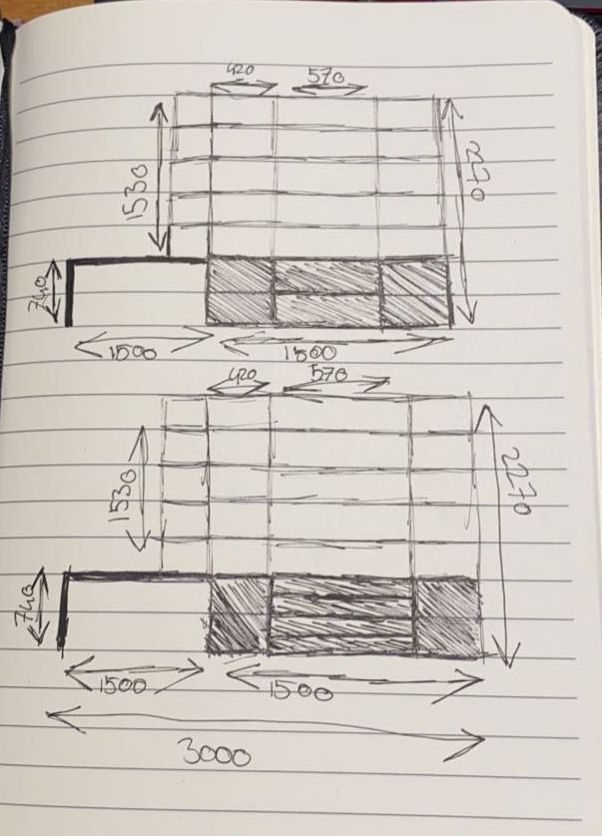 420 570
1530
2270
740
1500 1500
420 570
1530
2270
740
1500 1500
3000